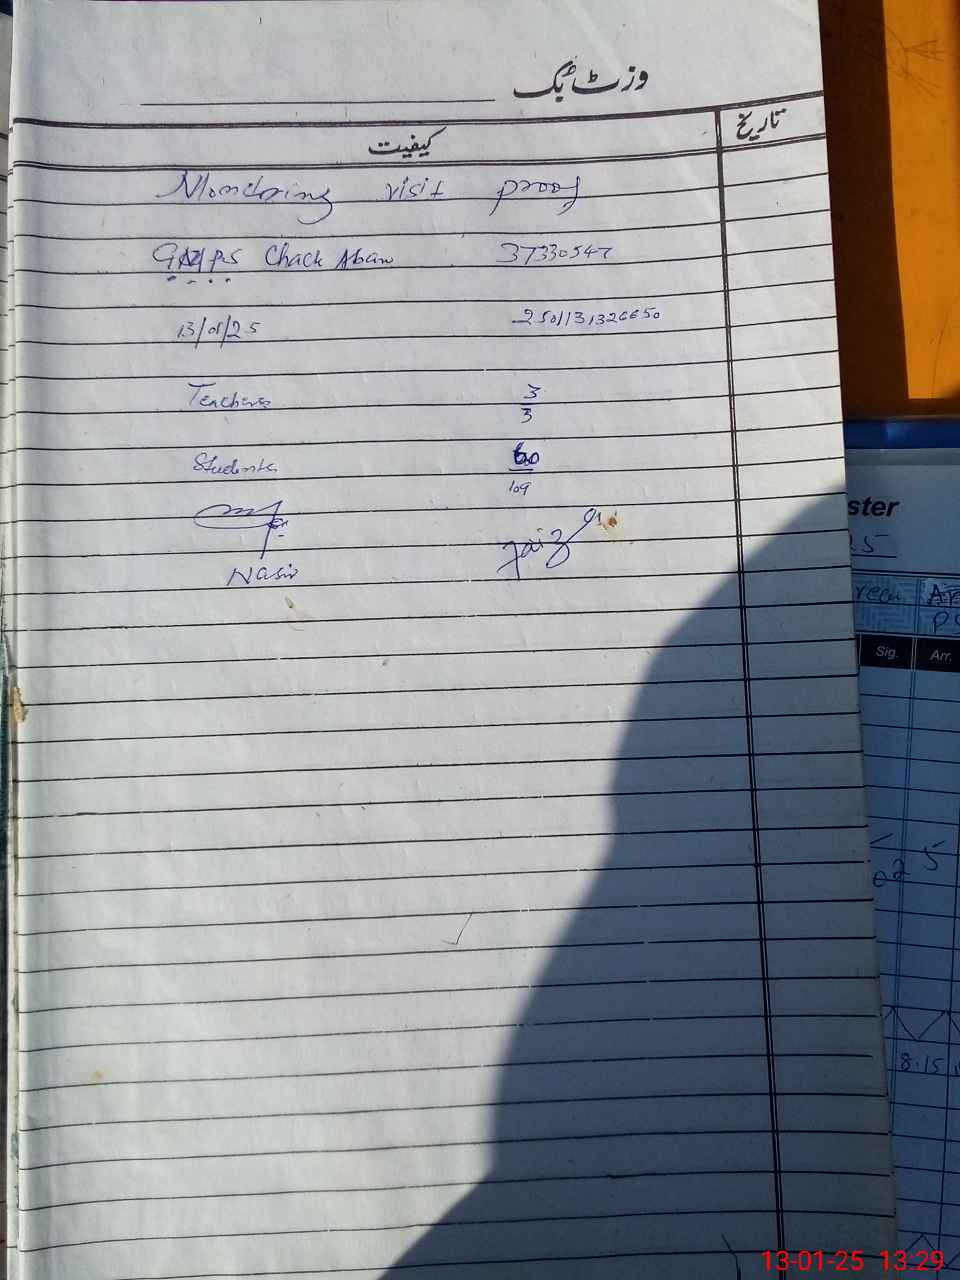 وزٹ بک
کیفیت تاریخ
Mondoring visit proof
Chack Aban 37330547
13/01/25 2501131326650
Teachers 3/3
Students 60/109
Nasir Faiz
ster
25
Sig. Arr.
5
8.15
13-01-25 13:29